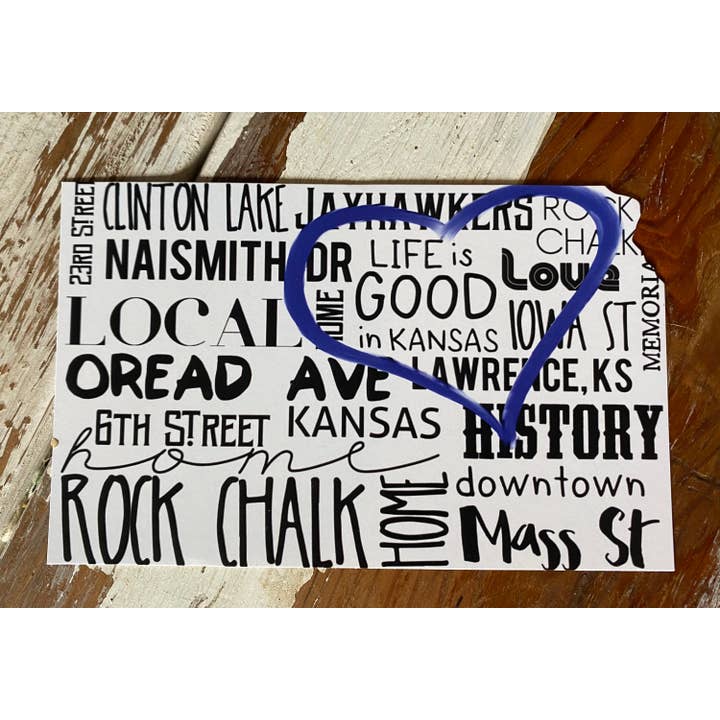 23RD STREET
CLINTON LAKE JAYHAWKERS ROCK
CHALK
NAISMITH DR
LIFE is
GOOD
in KANSAS
Love
LOCAL
HOME
IOWA ST
MEMORIA
OREAD AVE LAWRENCE, KS
6TH STREET KANSAS
HISTORY
home
ROCK CHALK
HOME
downtown
Mass St